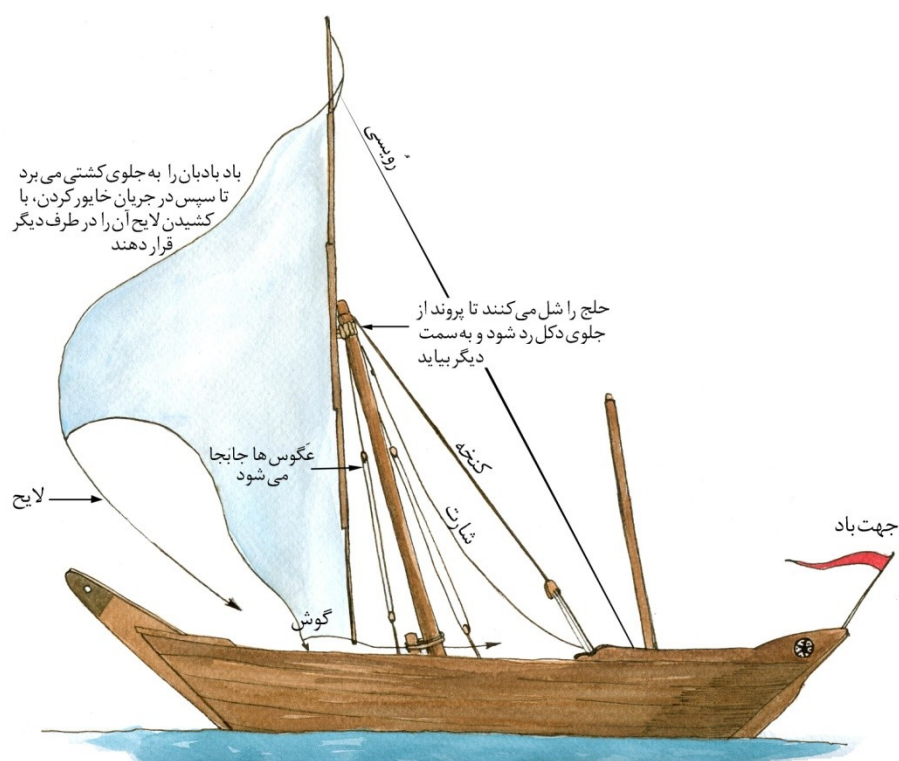 رُویسی
باد بادبان را به جلوی کشتی می برد
تا سپس در جریان خایور کردن، با
کشیدن لایح آن را در طرف دیگر
قرار دهند
حلج را شل می کنند تا پروند از
جلوی دکل رد شود و به سمت
دیگر بیاید
کنخه
عَگوس ها جابجا
می شود
لایح
شارت
جهت باد
گوش